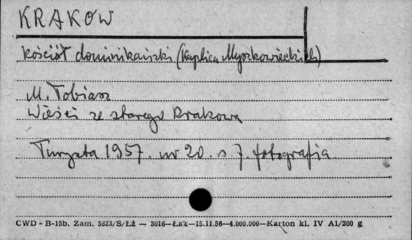 KRAKÓW
kościół dominikański (kaplica Myszkowskich)
M. Tobiasz
Wieści ze starego Krakowa
Turysta 1957. nr 20. s 7. fotografia
CWD - B-15b. Zam. 3823/S/Łż — 3016—Łak—15.11.56—4.000.000—Karton kl. IV A1/200 g